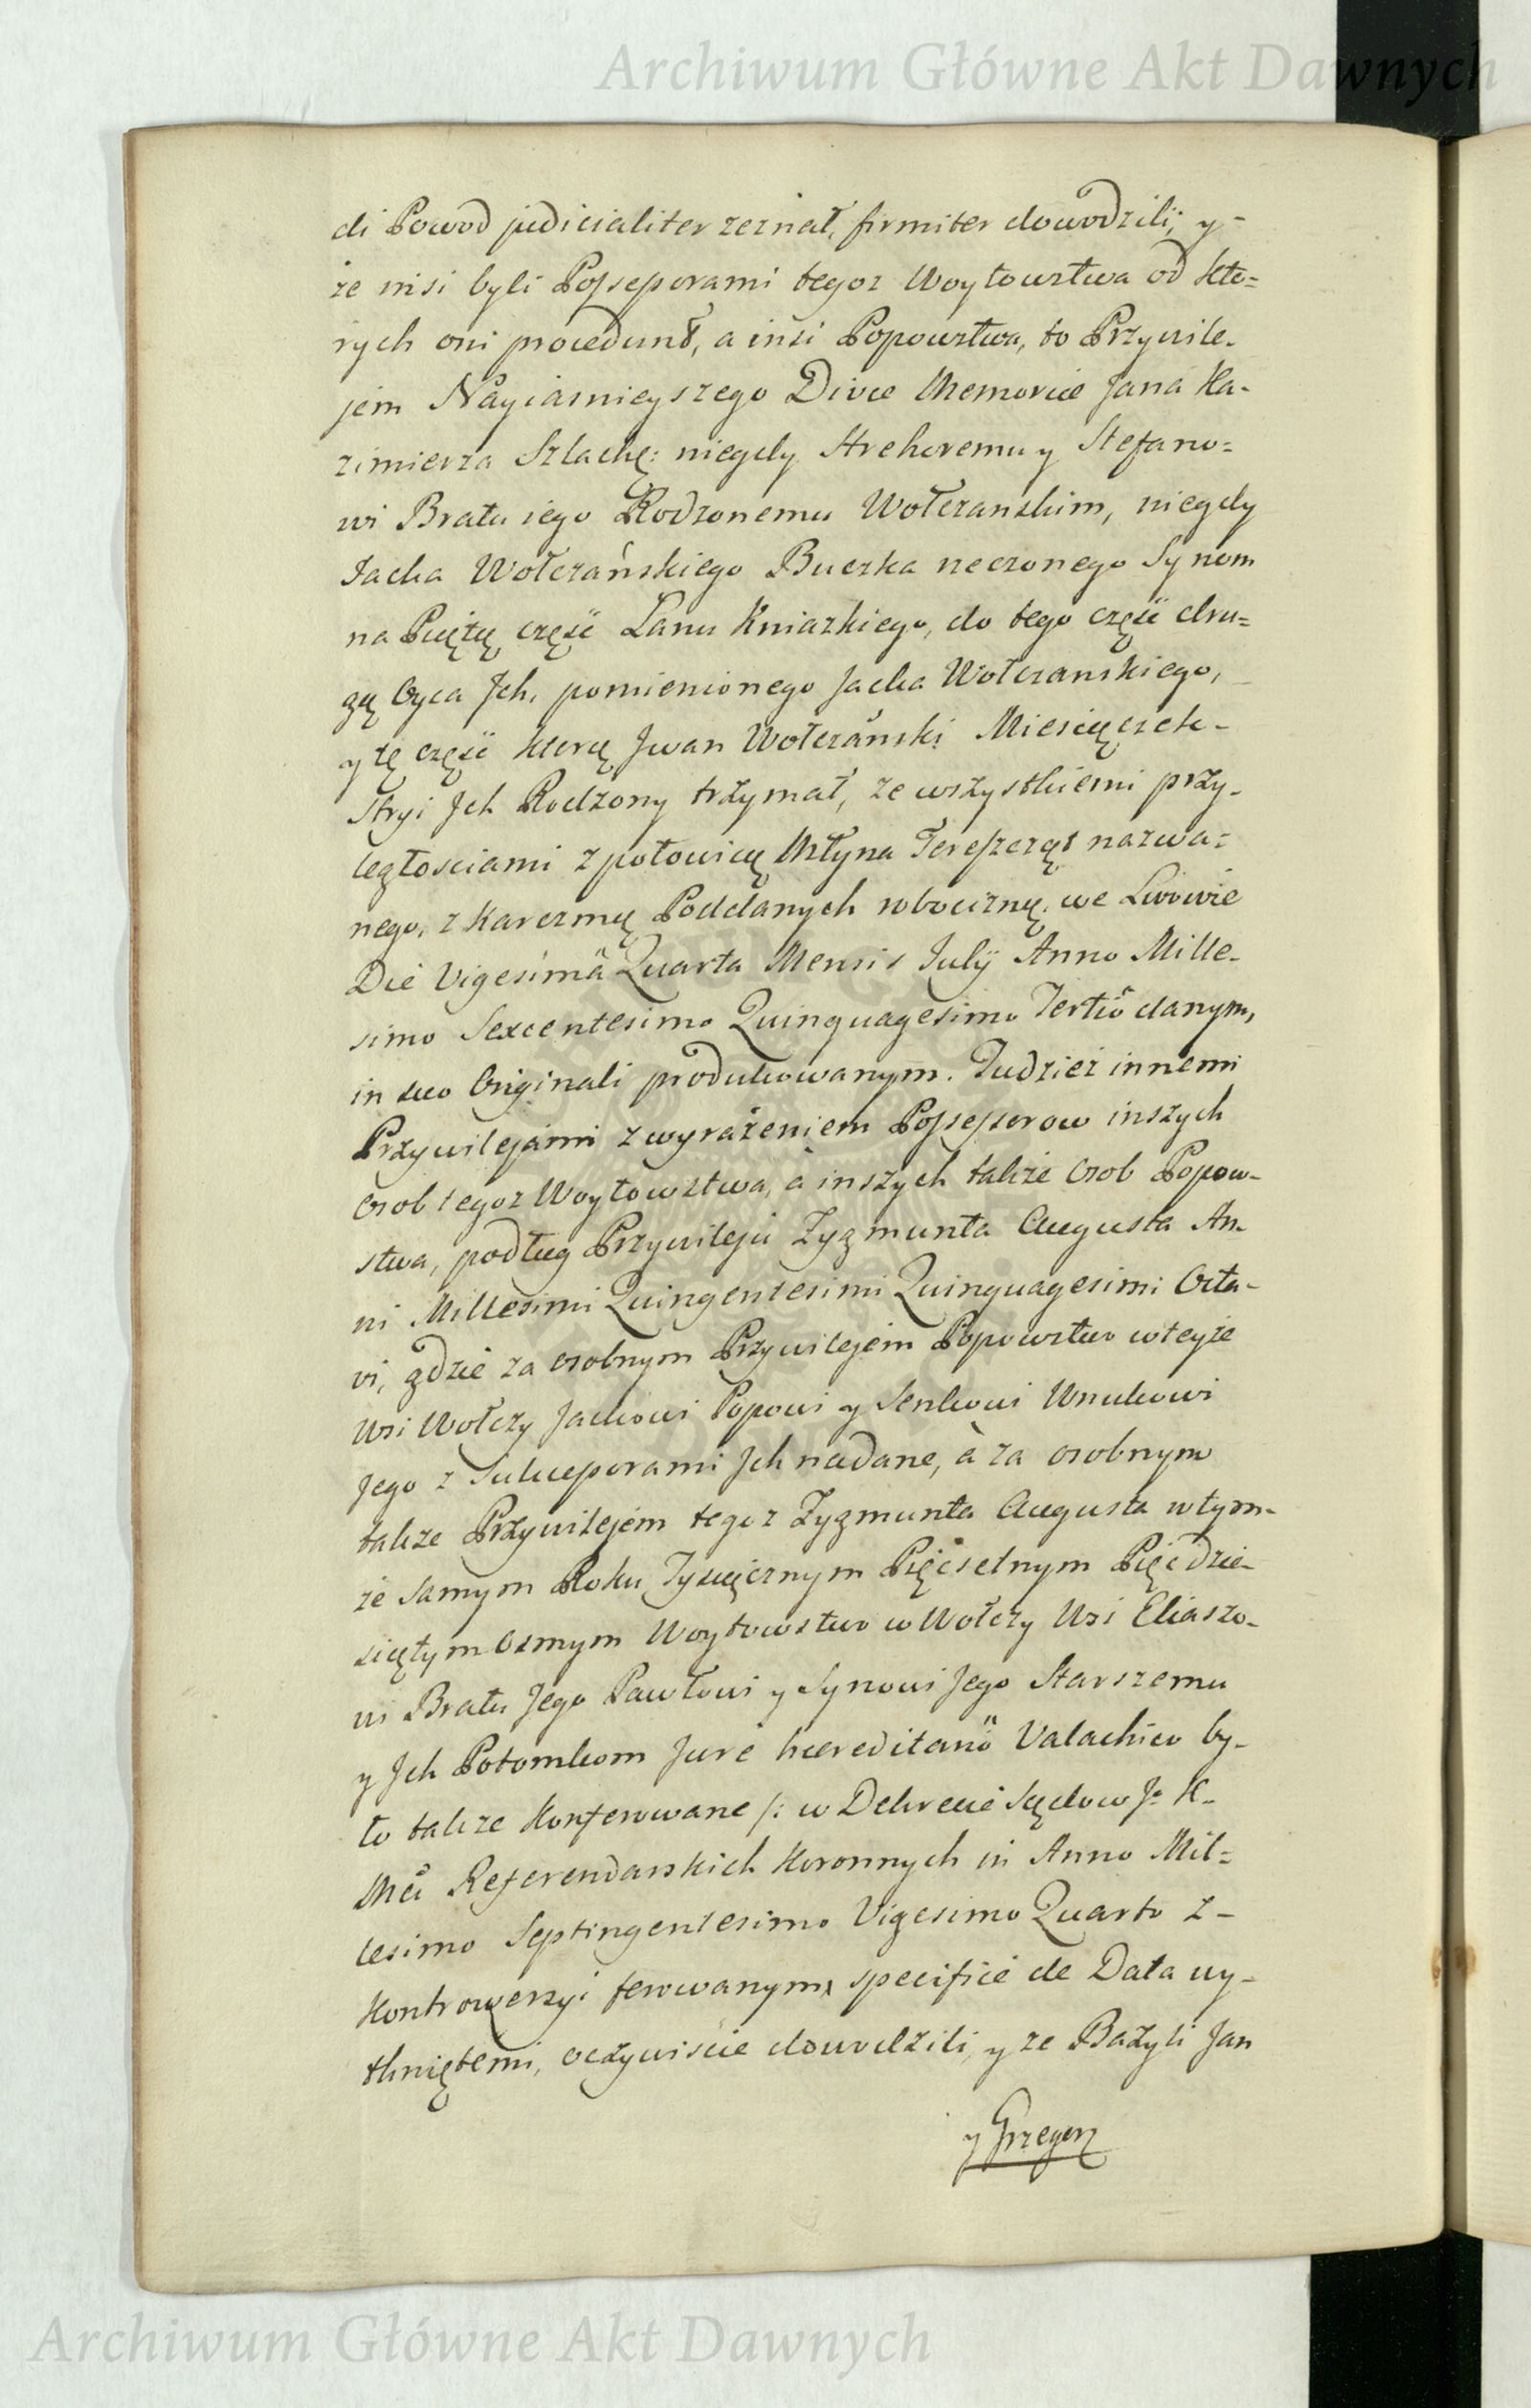 Archiwum Główne Akt Dawnych
di Powod judicialiter zeznał, firmiter dowodzili; y-
że insi byli Possessorami tegoz Woytowstwa od kto=
rych oni procedunt, a insi Popowstwa, to Przywile-
jem Nayiasnieyszego Divæ Memoriæ Jana Ka-
zimierza Szlachę: niegdy Hrehoremu y Stefano=
wi Bratu iego Rodzonemu Wołczanskim, niegdy
Jacka Wołczańskiego Buczka rzeczonego Synom
na Piątą część Łanu Kniazkiego, do tego część dru=
gą Oyca Jch, pomienionego Jacka Wołczanskiego,
y tę część ktorą Jwan Wołczański Miesiączek-
Stryi Jch Rodzony trzymał, ze wszystkiemi przy-
ległosciami z połowicą Młyna nazwa=
nego, z Karczmą Poddanych roboczną, we Lwowie
Die Vigesimâ Quarta Mensis Julÿ Anno Mille-
simo Sexcentesimo Quinquagesimo Tertiô danym,
in suo Originali produkowanym. Tudziez innemi
Przywilejami z wyrażeniem Possessorow inszych
Osob tegoz Woytowstwa, à inszych takze Osob Popow-
stwa, podług Przywileju Zygmunta Augusta An-
ni Millesimi Quingentesimi Quinquagesimi Octa-
vi, gdzie za osobnym Przywilejem Popowstwo w teyże
Wsi Wołczy Jackowi Popowi y Senkowi Wnukowi
Jego z Sukcessorami Jch nadane, à za osobnym
takze Przywilejem tegoz Zygmunta Augusta w tym-
że samym Roku Tysiącznym Pięcsetnym Pięcdzie-
siątym Osmym Woytowstwo w Wołczy Wsi Eliaszo-
wi Bratu Jego Pawłowi y Synowi Jego Starszemu
y Jch Potomkom Jure hæreditariô Valachico by-
ło takze konferowane /: w Dekrecie Sądow Jº K-
Mci Referendarskich Koronnych in Anno Mil=
lesimo Septingentesimo Vigesimo Quarto z-
Kontrowersyi ferowanym, specificè de Data wy-
tkniętemi, oczywiscie dowodzili, y ze Bazyli Jan
y Grzegorz
Archiwum Główne Akt Dawnych